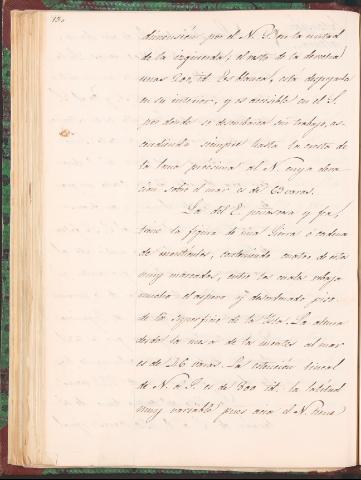 130
dimensión por el N. S. en la mitad
de la izquierda, el resto de la derecha
unas 200, id. Es blanca, está despejada
en su interior, y es accesible en el S.
por donde se desembarca sin trabajo, as-
cendiendo siempre hasta la cuesta de
la loma próxima al N. cuya eleva-
cion sobre el mar es de 63 varas.
La del E. peñascosa y fea,
tiene la figura de una Sierra o cadena
de montículos, contando cuatro de estos
muy marcados, entre los cuales rebaja
mucho el áspero y desordenado piso
de la superficie de la Isla. La altura
desde la mesa de la montes al mar
es de 46 varas. La estension lineal
de N. a S. es de 800 id. la latitud
muy variable pues acia el N. tiene